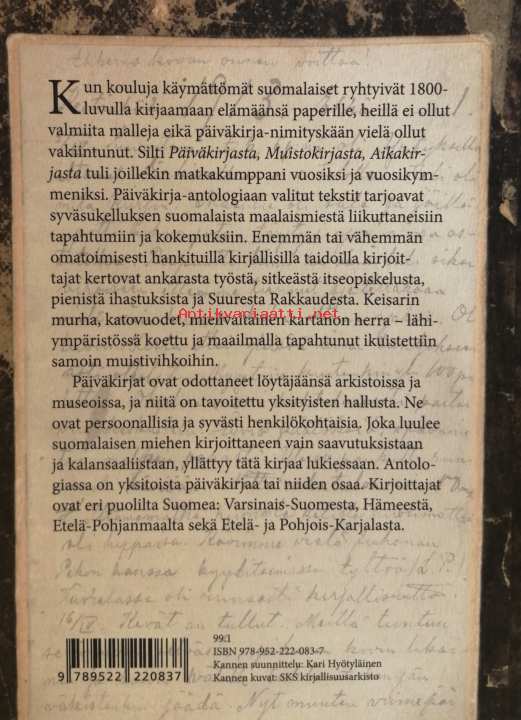 Kun kouluja käymättömät suomalaiset ryhtyivät 1800-
luvulla kirjaamaan elämäänsä paperille, heillä ei ollut
valmiita malleja eikä päiväkirja-nimityskään vielä ollut
vakiintunut. Silti Päiväkirjasta, Muistokirjasta, Aikakir-
jasta tuli joillekin matkakumppani vuosiksi ja vuosikym-
meniksi. Päiväkirja-antologiaan valitut tekstit tarjoavat
syväsukelluksen suomalaista maalaismiestä liikuttaneisiin
tapahtumiin ja kokemuksiin. Enemmän tai vähemmän
omatoimisesti hankituilla kirjallisilla taidoilla kirjoit-
tajat kertovat ankarasta työstä, sitkeästä itseopiskelusta,
pienistä ihastuksista ja Suuresta Rakkaudesta. Keisarin
Antikvariaatti.net
murha, katovuodet, mielivaltainen kartanon herra – lähi-
ympäristössä koettu ja maailmalla tapahtunut ikuistettiin
samoin muistivihkoihin.
Päiväkirjat ovat odottaneet löytäjäänsä arkistoissa ja
museoissa, ja niitä on tavoitettu yksityisten hallusta. Ne
ovat persoonallisia ja syvästi henkilökohtaisia. Joka luulee
suomalaisen miehen kirjoittaneen vain saavutuksistaan
ja kalansaaliistaan, yllättyy tätä kirjaa lukiessaan. Antolo-
giassa on yksitoista päiväkirjaa tai niiden osaa. Kirjoittajat
ovat eri puolilta Suomea: Varsinais-Suomesta, Hämeestä,
Etelä-Pohjanmaalta sekä Etelä- ja Pohjois-Karjalasta.
99.1
ISBN 978-952-222-083-7
Kannen suunnittelu: Kari Hyötyläinen
Kannen kuvat: SKS kirjallisuusarkisto
9 789522 220837